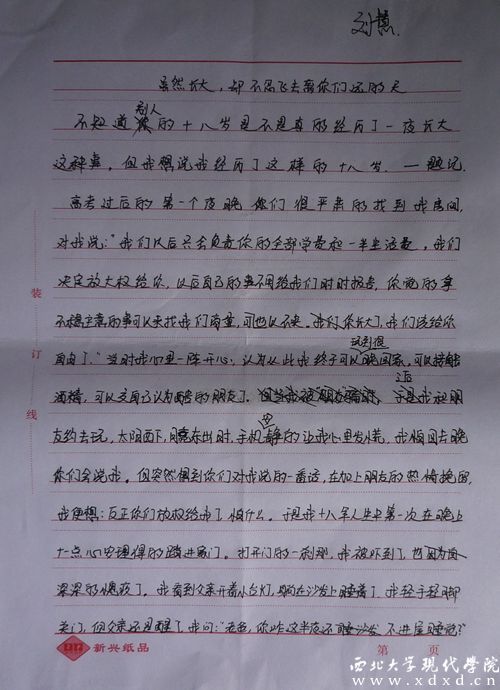 刘慧.
虽然长大,却不愿飞去离你们远的天
不知道别人的十八岁是不是真的经历了一夜长大
这种事。但我想说我经历了这样的十八岁. —题记.
高考过后的第一个夜晚 你们很严肃的找到我房间.
对我说:"我们以后只会负责你的全部学费和一半生活费,我们
决定放大权给你,以后自己的事不用给我们时时报告,你觉的拿
不稳主意的事可以来找我们商量,可也以不来。我们你长大了,我们该给你
自由了."当时我心里一阵开心,认为从此我终于可以玩到很晚回家,可以接触
酒精,可以交自己认为酷的朋友了。于是我被朋
友约去玩,太阳西下,月亮东出时,手机安静的让我心里发慌,我怕回去晚
你们会说我。但突然想到你们对我说的一番话,在加上朋友的热情挽留,
我便想:反正你们放权给我了怕什么。于是我十八年人生中第一次在晚上
十一点心安理得的踏进家门。打开门的一刹那,我被吓到了,
深深的愧疚了。我看到父亲开着小台灯,躺在沙发上睡着了,我轻手轻脚
关门,但父亲还是醒了,我问:"老爸,你咋这半夜还睡沙发,不进屋睡觉?"
装
订
线
新兴纸品
第 页
西北大学现代学院
www.xdxd.cn